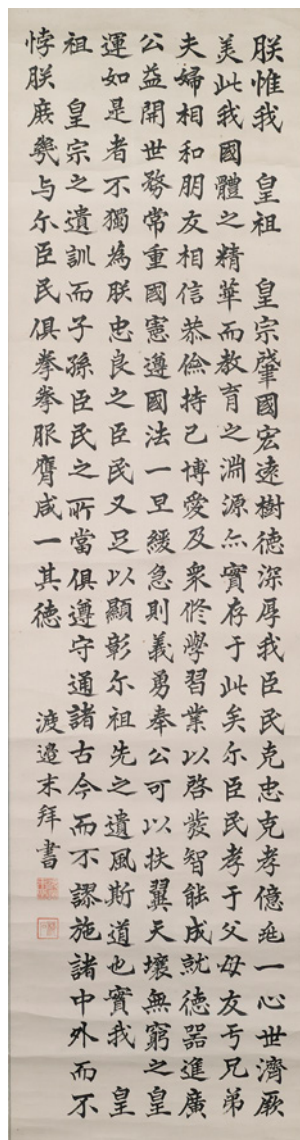 朕惟我　皇祖　皇宗肇國宏遠樹徳深厚我臣民克忠克孝億兆一心世濟厥
美此我國體之精華而教育之淵源亦實存于此矣尓臣民孝于父母友于兄弟
夫婦相和朋友相信恭儉持己博愛及衆修學習業以啓發智能成就徳器進廣
公益開世務常重國憲遵國法一旦緩急則義勇奉公可以扶翼天壤無窮之皇
運如是者不獨為朕忠良之臣民又足以顯彰尓祖先之遺風斯道也實我　皇
祖　皇宗之遺訓而子孫臣民之所當俱遵守通諸古今而不謬施諸中外而不
悖朕庶幾与尓臣民俱拳拳服膺咸一其徳
渡邉末拜書